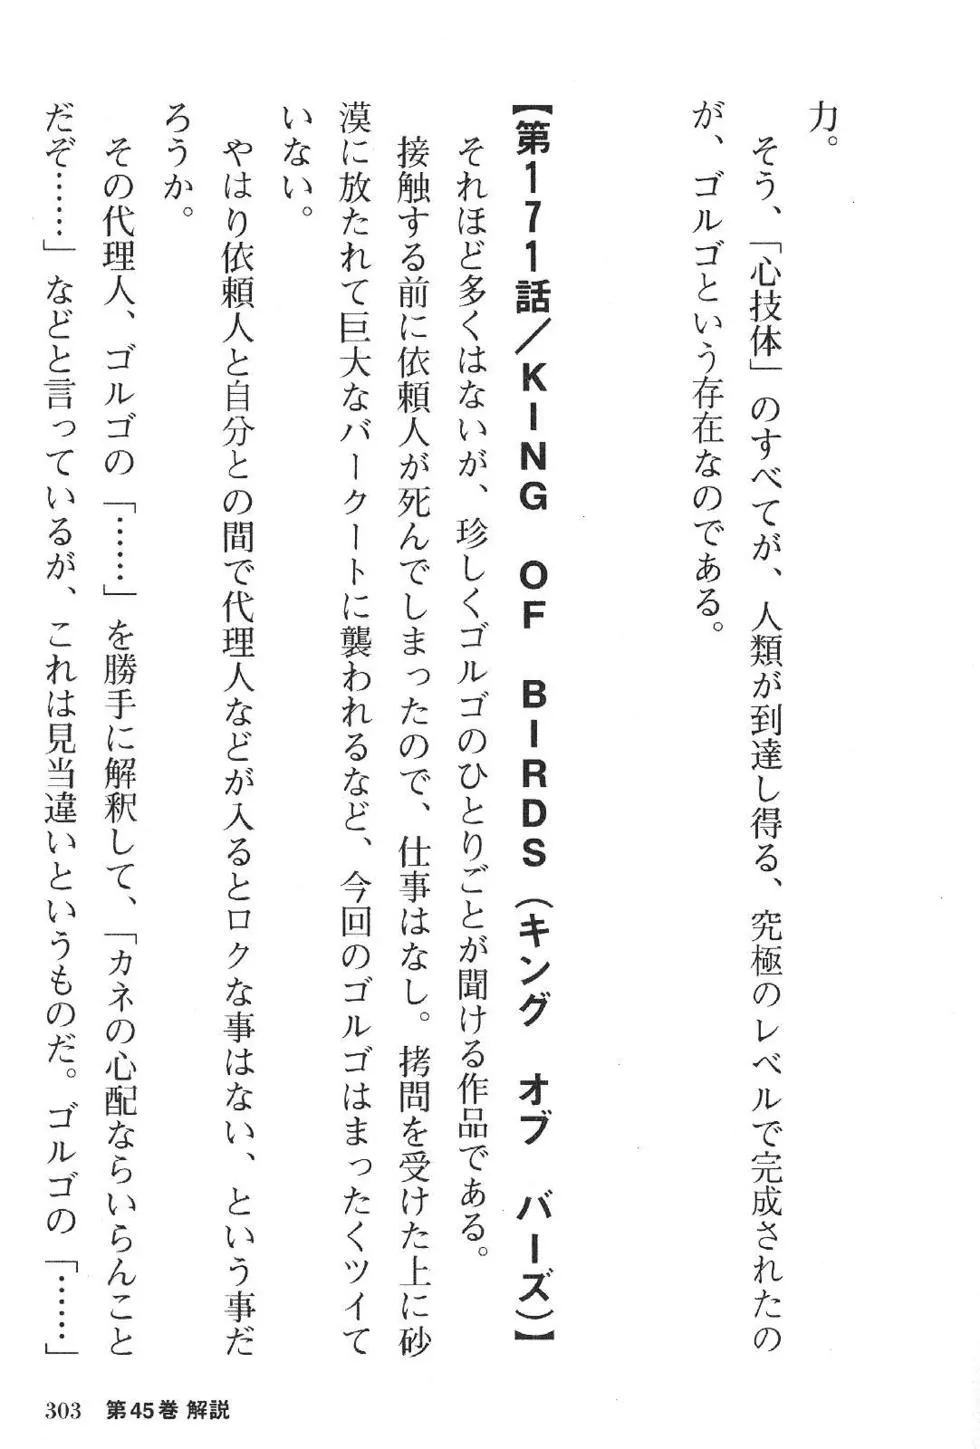 力。
そう、「心技体」のすべてが、人類が到達し得る、究極のレベルで完成されたの
が、ゴルゴという存在なのである。
【第171話／KING OF BIRDS（キング オブ バーズ）】
それほど多くはないが、珍しくゴルゴのひとりごとが聞ける作品である。
接触する前に依頼人が死んでしまったので、仕事はなし。拷問を受けた上に砂
漠に放たれて巨大なバークートに襲われるなど、今回のゴルゴはまったくツイて
いない。
やはり依頼人と自分との間で代理人などが入るとロクな事はない、という事だ
ろうか。
その代理人、ゴルゴの「……」を勝手に解釈して、「カネの心配ならいらんこと
だぞ……」などと言っているが、これは見当違いというものだ。ゴルゴの「……」
303 第45巻 解説